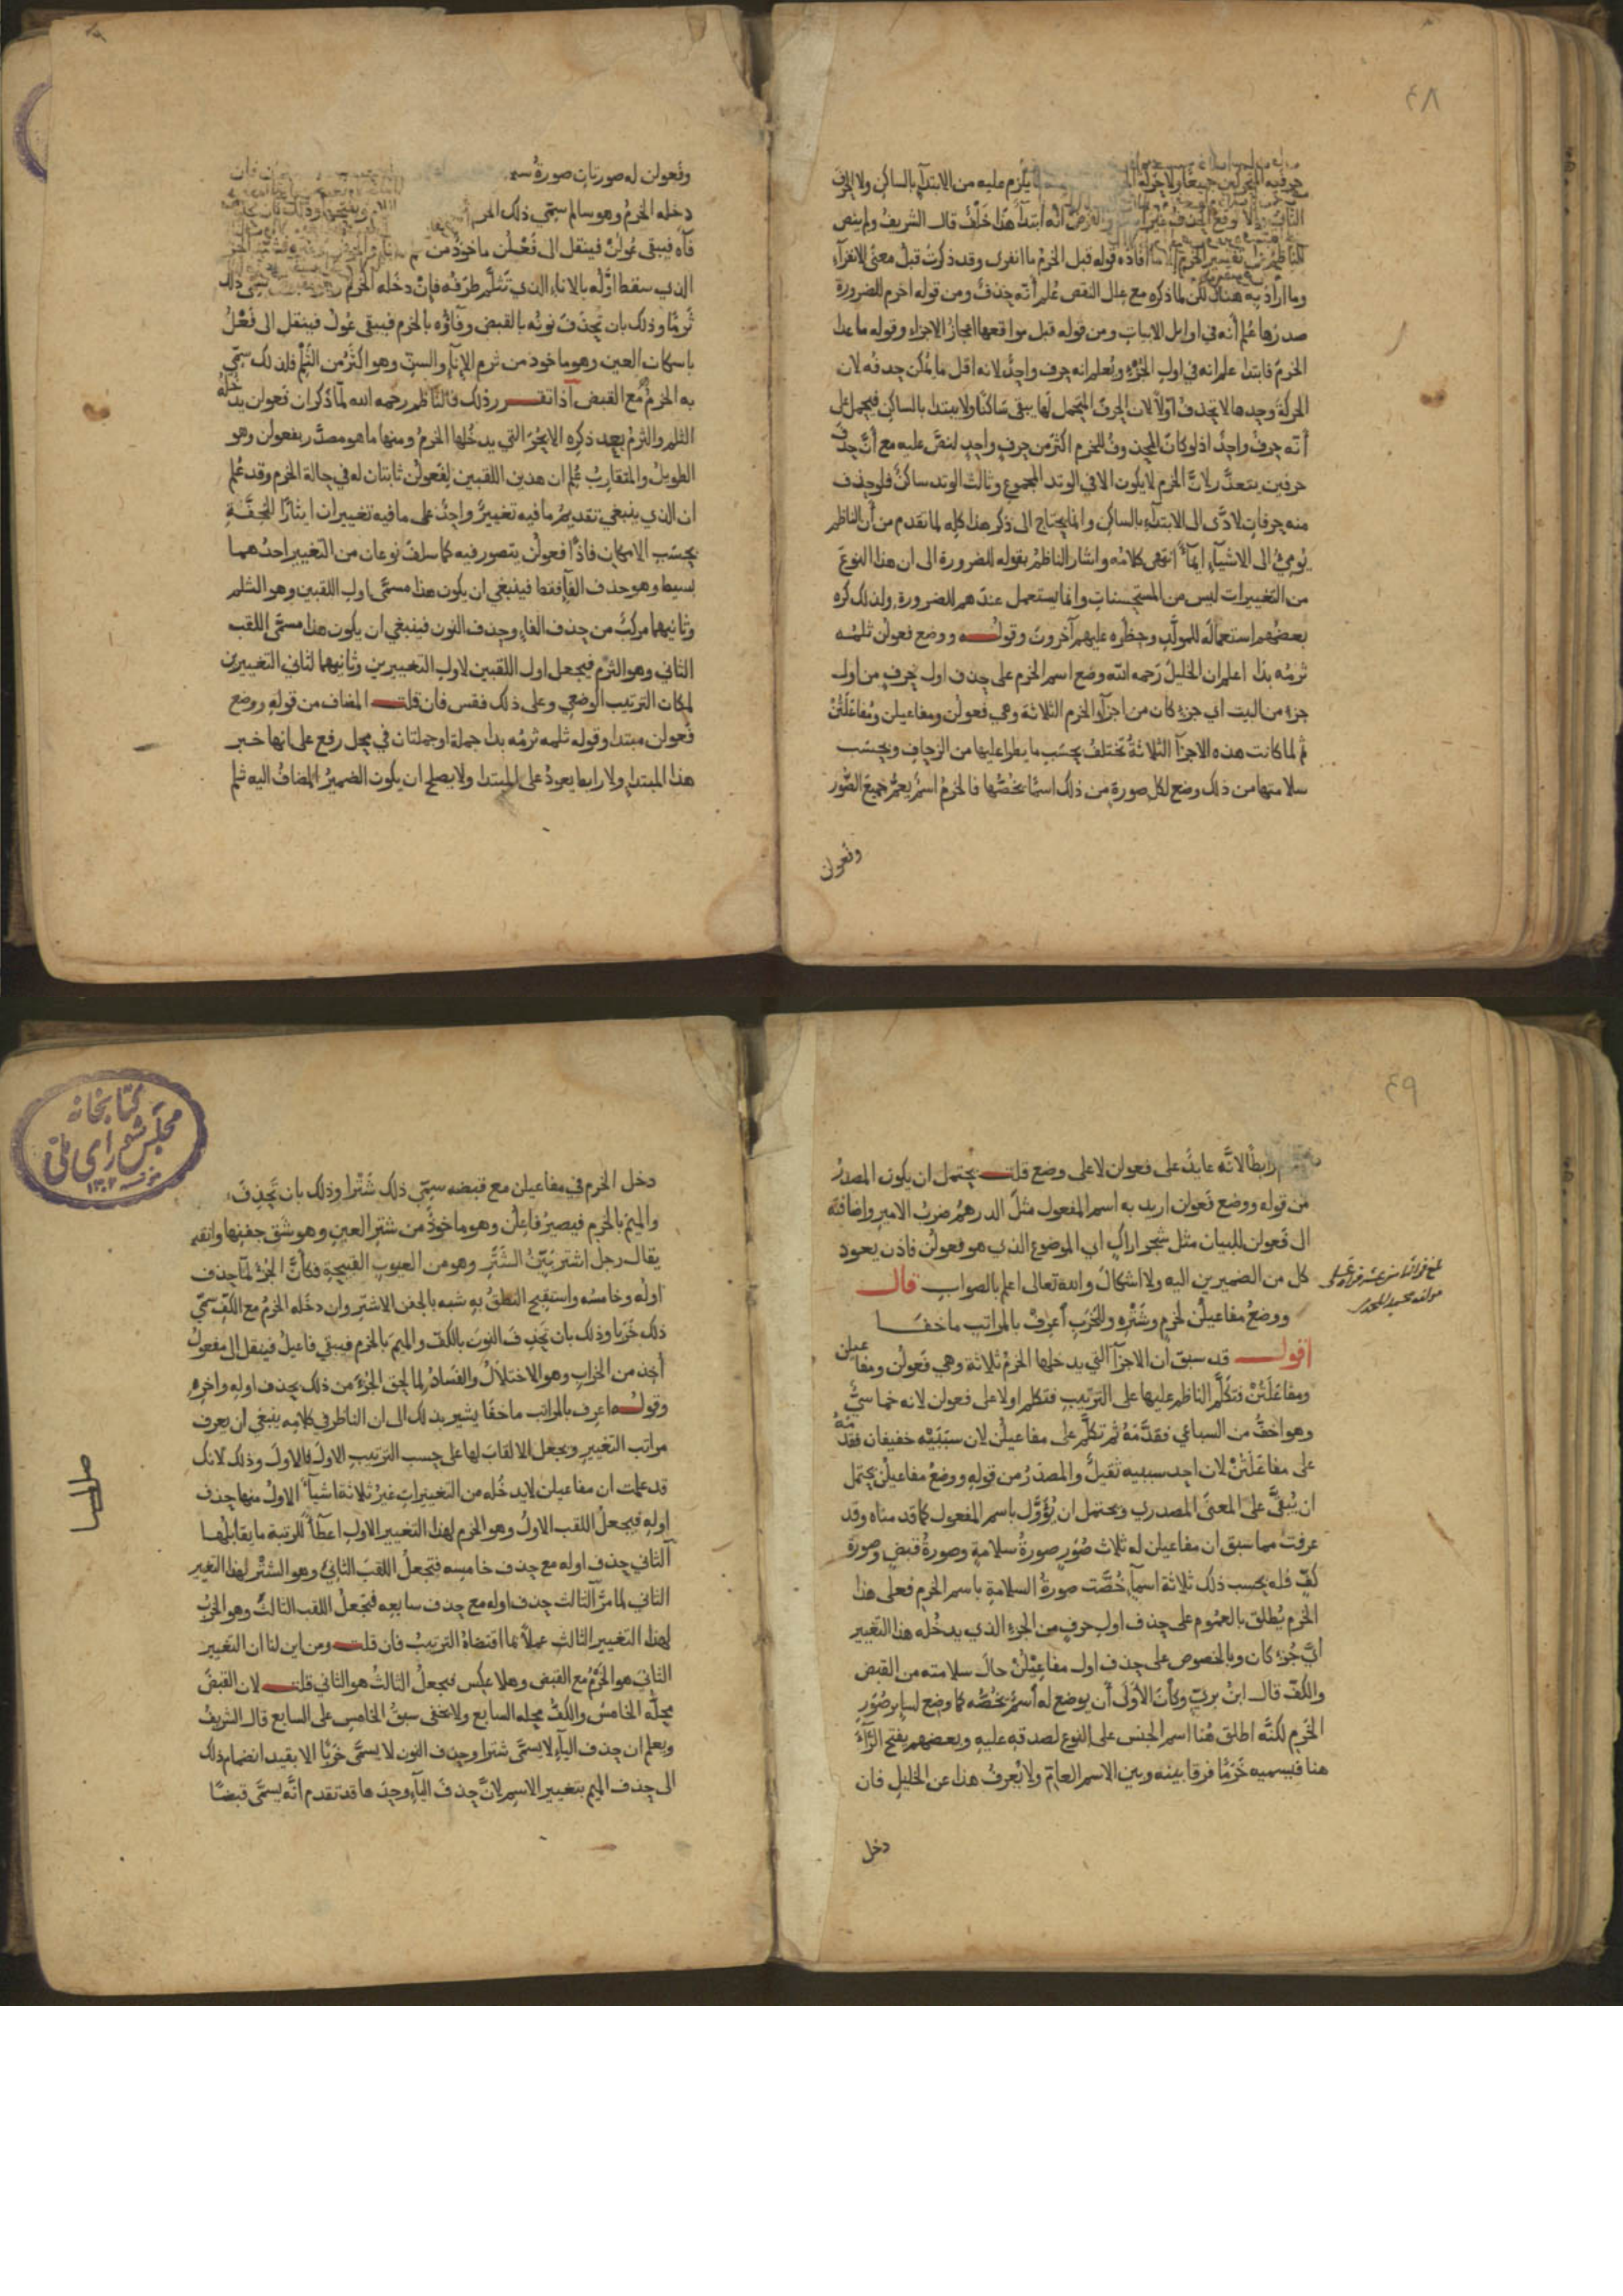 ٤٨
حرفيه المتحركين جميعا ولا يلزم عليه من الابتداء بالساكن ولا الحرف
الثاني والا وقع الحذف غير انه ابتداء هذا خلف قال الشريف ولم ينص
الناظم على تفسير الخرم افاده قوله قبل الخرم ما انفرى وقد ذكرت قبل معنى الانفراء
وما اراد به هناك لكن لما ذكره مع علل النقص علم أنه حذف ومن قوله اخرم للضرورة
صدرها علم أنه في اوايل الابيات ومن قوله قبل مواقعها اعجاز الاجزاء وقوله ما عدا
الخرم فابتدا علم انه في اول الجزء ويعلم انه حرف واحد لانه اقل ما يمكن حذفه لان
الحركة وحدها لا تحذف اولا لان الحرف المتحمل لها يبقى ساكنا ولا يبتدا بالساكن فيحمل على
أنه حرف واحد اذ لو كان المحذوف للخرم اكثر من حرف واحد لنص عليه مع أن حذف
حرفين يتعذر لان الخرم لا يكون الا في الوتد المجموع وثالث الوتد ساكن فلو حذف
منه حرفان لادى الى الابتداء بالساكن وانما يحتاج الى ذكر هذا كله لما تقدم من أن الناظم
يومئ الى الاشياء ايماء انتهى كلامه واشار الناظم بقوله للضرورة الى ان هذا النوع
من التغييرات ليس من المستحسنات وانما يستعمل عندهم للضرورة ولذلك كره
بعضهم استعماله للمولد وحظره عليهم آخرون وقوله ووضع فعولن ثلمه
ثرمه بدا اعلم ان الخليل رحمه الله وضع اسم الخرم على حذف اول حرف من اول
جزء من البيت اي جزء كان من اجزاء الخرم الثلاثة وهي فعولن ومفاعيلن ومفاعلتن
ثم لما كانت هذه الاجزا الثلاثة تختلف بحسب ما يطرا عليها من الزحاف وبحسب
سلامتها من ذلك وضع لكل صورة من ذلك اسما يخصها فالخرم اسم يعم جميع الصور
وفعولن
وفعولن له صورتان صورة
دخله الخرم وهو سالم سمي ذلك
فاه فيبقى عولن فينقل الى فعلن ماخوذ من
الذي سقط اوله بالاناء الذي تثلم طرفه فان دخله الخرم سمي ذلك
ثرما وذلك بان تحذف نونه بالقبض وفاؤه بالخرم فيبقى عول فينقل الى فعل
باسكان العين وهو ماخوذ من ثرم الاناء والسن وهو اكثر من الثلم فلذلك سمي
به الخرم مع القبض اذا تقرر ذلك فالناظم رحمه الله لما ذكر ان فعولن يدخله
الثلم والثرم بعد ذكره الابحر التي يدخلها الخرم ومنها ما هو مصدر بفعولن وهو
الطويل والمتقارب علم ان هذين اللقبين لفعولن ثابتان له في حالة الخرم وقد علم
ان الذي ينبغي تقديم ما فيه تغيير واحد على ما فيه تغييران ايثارا للخفة
بحسب الامكان فاذا فعولن يتصور فيه كما سلف نوعان من التغيير احدهما
بسيط وهو حذف الفاء فقط فينبغي ان يكون هذا مسمى اول اللقبين وهو الثلم
وثانيهما مركب من حذف الفاء وحذف النون فينبغي ان يكون هذا مسمى اللقب
الثاني وهو الثرم فيجعل اول اللقبين لاول التغييرين وثانيهما لثاني التغييرين
لمكان الترتيب الوضعي وعلى ذلك فقس فان قلت المضاف من قوله ووضع
فعولن مبتدا وقوله ثلمه ثرمه بدا جملة او جملتان في محل رفع على انها خبر
هذا المبتدا ولا رابط يعود على المبتدا ولا يصلح ان يكون الضمير المضاف اليه ثلم
٤٩
رابطا لانه عايد على فعولن لا على وضع قلت يحتمل ان يكون المصدر
من قوله ووضع فعولن اريد به اسم المفعول مثل الدرهم ضرب الامير واضافته
الى فعولن للبيان مثل شجر اراك اي الموضوع الذي هو فعولن فاذن يعود
كل من الضميرين اليه ولا اشكال والله تعالى اعلم بالصواب قال
ووضع مفاعيلن لخرم وشتره وللخرب اعرف بالمراتب ما خفا
اقول قد سبق ان الاجزا التي يدخلها الخرم ثلاثة وهي فعولن ومفاعيلن
ومفاعلتن فتكلم الناظم عليها على الترتيب فتكلم اولا على فعولن لانه خماسي
وهو اخف من السباعي فقدمه ثم تكلم على مفاعيلن لان سببيه خفيفان فقدمه
على مفاعلتن لان احد سببيه ثقيل والمصدر من قوله ووضع مفاعيلن يحتمل
ان يبقى على المعنى المصدري ويحتمل ان يؤول باسم المفعول كما قدمناه وقد
عرفت مما سبق ان مفاعيلن له ثلاث صور صورة سلامة وصورة قبض وصورة
كف فله بحسب ذلك ثلاثة اسماء خصت صورة السلامة باسم الخرم فعلى هذا
الخرم يطلق بالعموم على حذف اول حرف من الجزء الذي يدخله هذا التغيير
اي جزء كان وبالخصوص على حذف اول مفاعيلن حال سلامته من القبض
والكف قال ابن بري وكان الاولى أن يوضع له اسم يخصه كما وضع لساير صور
الخرم لكنه اطلق هنا اسم الجنس على النوع لصدقه عليه وبعضهم يفتح الراء
هنا فيسميه خرما فرقا بينه وبين الاسم العام ولا يعرف هذا عن الخليل فان
دخل
كتابخانه
مجلس شورای ملی
دخل الخرم في مفاعيلن مع قبضه سمي ذلك شترا وذلك بان تحذف
والميم بالخرم فيصير فاعلن وهو ماخوذ من شتر العين وهو شق جفنها وانقه
يقال رجل اشتر بين الشتر وهو من العيوب القبيحة فكأن الجزء لما حذف
اوله وخامسه واستقبح النطق به شبه بالجفن الاشتر وان دخله الخرم مع الكف سمي
ذلك خربا وذلك بان تحذف النون بالكف والميم بالخرم فيبقى فاعيل فينقل الى مفعول
أخذ من الخراب وهو الاختلال والفساد لما لحق الجزء من ذلك بحذف اوله واخره
وقوله اعرف بالمراتب ما خفا يشير بذلك الى ان الناظر في كلامه ينبغي أن يعرف
مراتب التغيير ويجعل الالقاب لها على حسب الترتيب الاول فالاول وذلك لانك
قد علمت ان مفاعيلن لا يدخله من التغييرات غير ثلاثة اشياء الاول منها حذف
اوله فيجعل اللقب الاول وهو الخرم لهذا التغيير الاول اعطاء للرتبة ما يقابلها
الثاني حذف اوله مع حذف خامسه فتجعل اللقب الثاني وهو الشتر لهذا التغير
الثاني لما مر الثالث حذف اوله مع حذف سابعه فتجعل اللقب الثالث وهو الخرب
لهذا التغيير الثالث عملا بما اقتضاه الترتيب فان قلت ومن اين لنا ان التغيير
الثاني هو الخرم مع القبض وهلا عكس فيجعل الثالث هو الثاني قلت لان القبض
محله الخامس والكف محله السابع ولا يخفى سبق الخامس على السابع قال الشريف
ويعلم ان حذف الياء لا يسمى شترا وحذف النون لا يسمى خربا الا بقيد انضمام ذلك
الى حذف الميم بتغيير الاسم لان حذف الياء وحدها قد تقدم انه يسمى قبضا